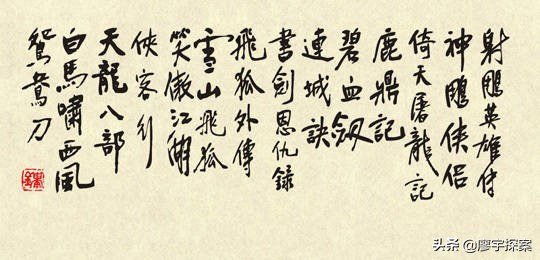 射鵰英雄传
神鵰俠侶
倚天屠龍記
鹿鼎記
碧血劍
連城訣
書劍恩仇錄
飛狐外傳
雪山飛狐
笑傲江湖
俠客行
天龍八部
白馬嘯西風
鴛鴦刀
头条 @廖宇探案